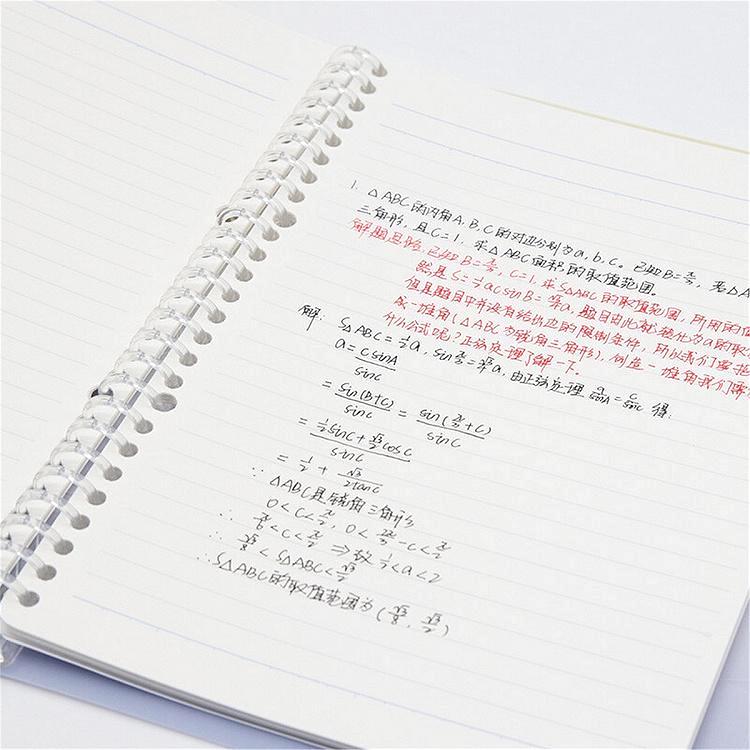 1. △ABC的内角A,B,C的对边分别为a,b,c。已知B=π/3, 若△A
三角形,且C=1,求△ABC面积的取值范围
已知B=π/3, C=1,求S△ABC的取值范围,所用的
S=½acsinB=√3/4a,题目由此就转化为a的取
值是题目中并没有给出边的限制条件,所以我们要把
成一堆角(△ABC为锐角三角形),创造一堆角我们要
什么公式呢?正弦定理了解一下。
解: S△ABC=½a,sinπ/3=√3/4a,由正弦定理 a/sinA=c/sinC 得:
a=csinA/sinC
=sin(B+C)/sinC=sin(π/3+C)/sinC
=(½sinC+√3/2cosC)/sinC
=½+√3/2tanC
∵ △ABC是锐角三角形
0<C<π/2, 0<2π/3-C<π/2
∴ π/6<C<π/2 ⇒故½<a<2
∴ √3/8<S△ABC<√3/2
∴S△ABC的取值范围为(√3/8,√3/2)